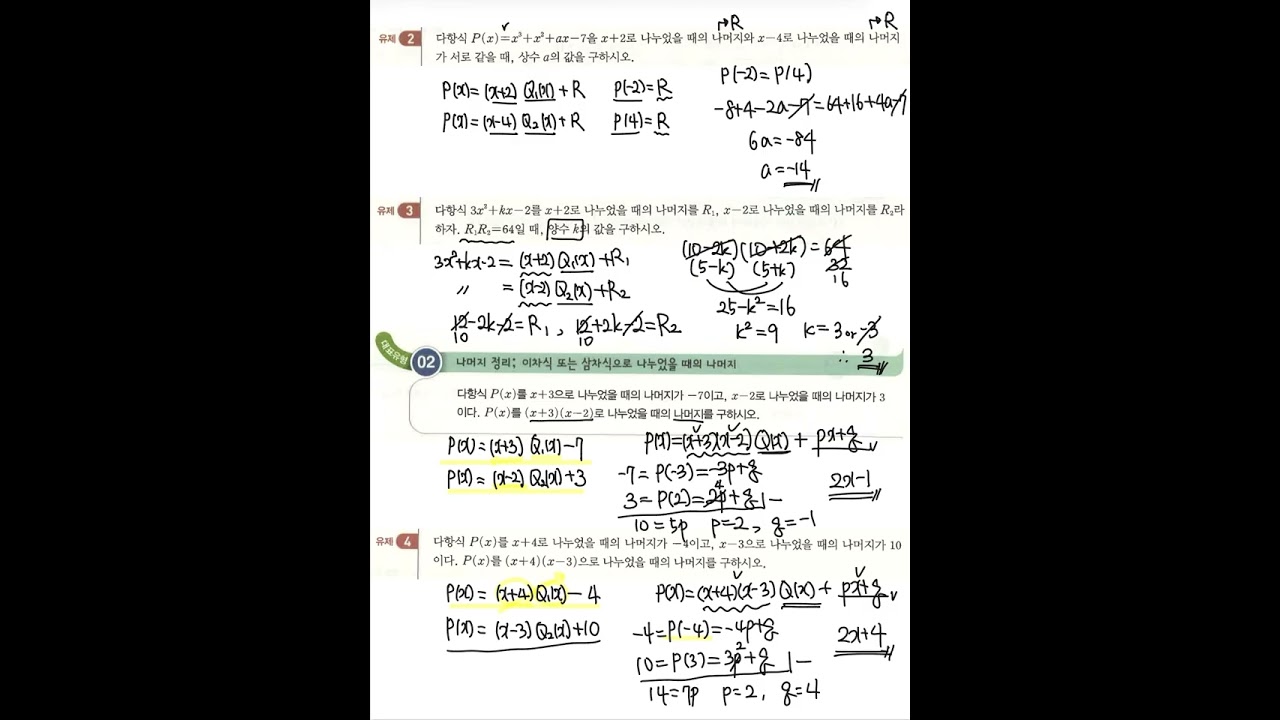 →R →R
유제 2 다항식 P(x)=x³+x²+ax-7을 x+2로 나누었을 때의 나머지와 x-4로 나누었을 때의 나머지
가 서로 같을 때, 상수 a의 값을 구하시오.
P(x)=(x+2) Q₁(x)+R P(-2)=R P(-2)=P(4)
P(x)=(x-4) Q₂(x)+R P(4)=R -8+4-2a-7=64+16+4a-7
6a=-84
a=-14
유제 3 다항식 3x²+kx-2를 x+2로 나누었을 때의 나머지를 R₁, x-2로 나누었을 때의 나머지를 R₂라
하자. R₁R₂=64일 때, 양수 k의 값을 구하시오.
3x²+kx-2=(x+2) Q₁(x)+R₁ (10-2k)(10+2k)=64
(5-k) (5+k) 32
16
〃 =(x-2) Q₂(x)+R₂ 25-k²=16
12-2k-2=R₁, 12+2k-2=R₂ k²=9 k=3 or -3
10 10 ∴ 3
대표유형 02 나머지 정리; 이차식 또는 삼차식으로 나누었을 때의 나머지
다항식 P(x)를 x+3으로 나누었을 때의 나머지가 -7이고, x-2로 나누었을 때의 나머지가 3
이다. P(x)를 (x+3)(x-2)로 나누었을 때의 나머지를 구하시오.
P(x)=(x+3) Q₁(x)-7 P(x)=(x+3)(x-2) Q(x)+px+q
P(x)=(x-2) Q₂(x)+3 -7=P(-3)=-3p+q 2x-1
3=P(2)=2p+q
4
10=5p p=2, q=-1
유제 4 다항식 P(x)를 x+4로 나누었을 때의 나머지가 -4이고, x-3으로 나누었을 때의 나머지가 10
이다. P(x)를 (x+4)(x-3)으로 나누었을 때의 나머지를 구하시오.
P(x)=(x+4)Q₁(x)-4 P(x)=(x+4)(x-3) Q(x)+px+q
P(x)=(x-3)Q₂(x)+10 -4=P(-4)=-4p+q 2x+4
10=P(3)=3p+q
2
14=7p p=2, q=4